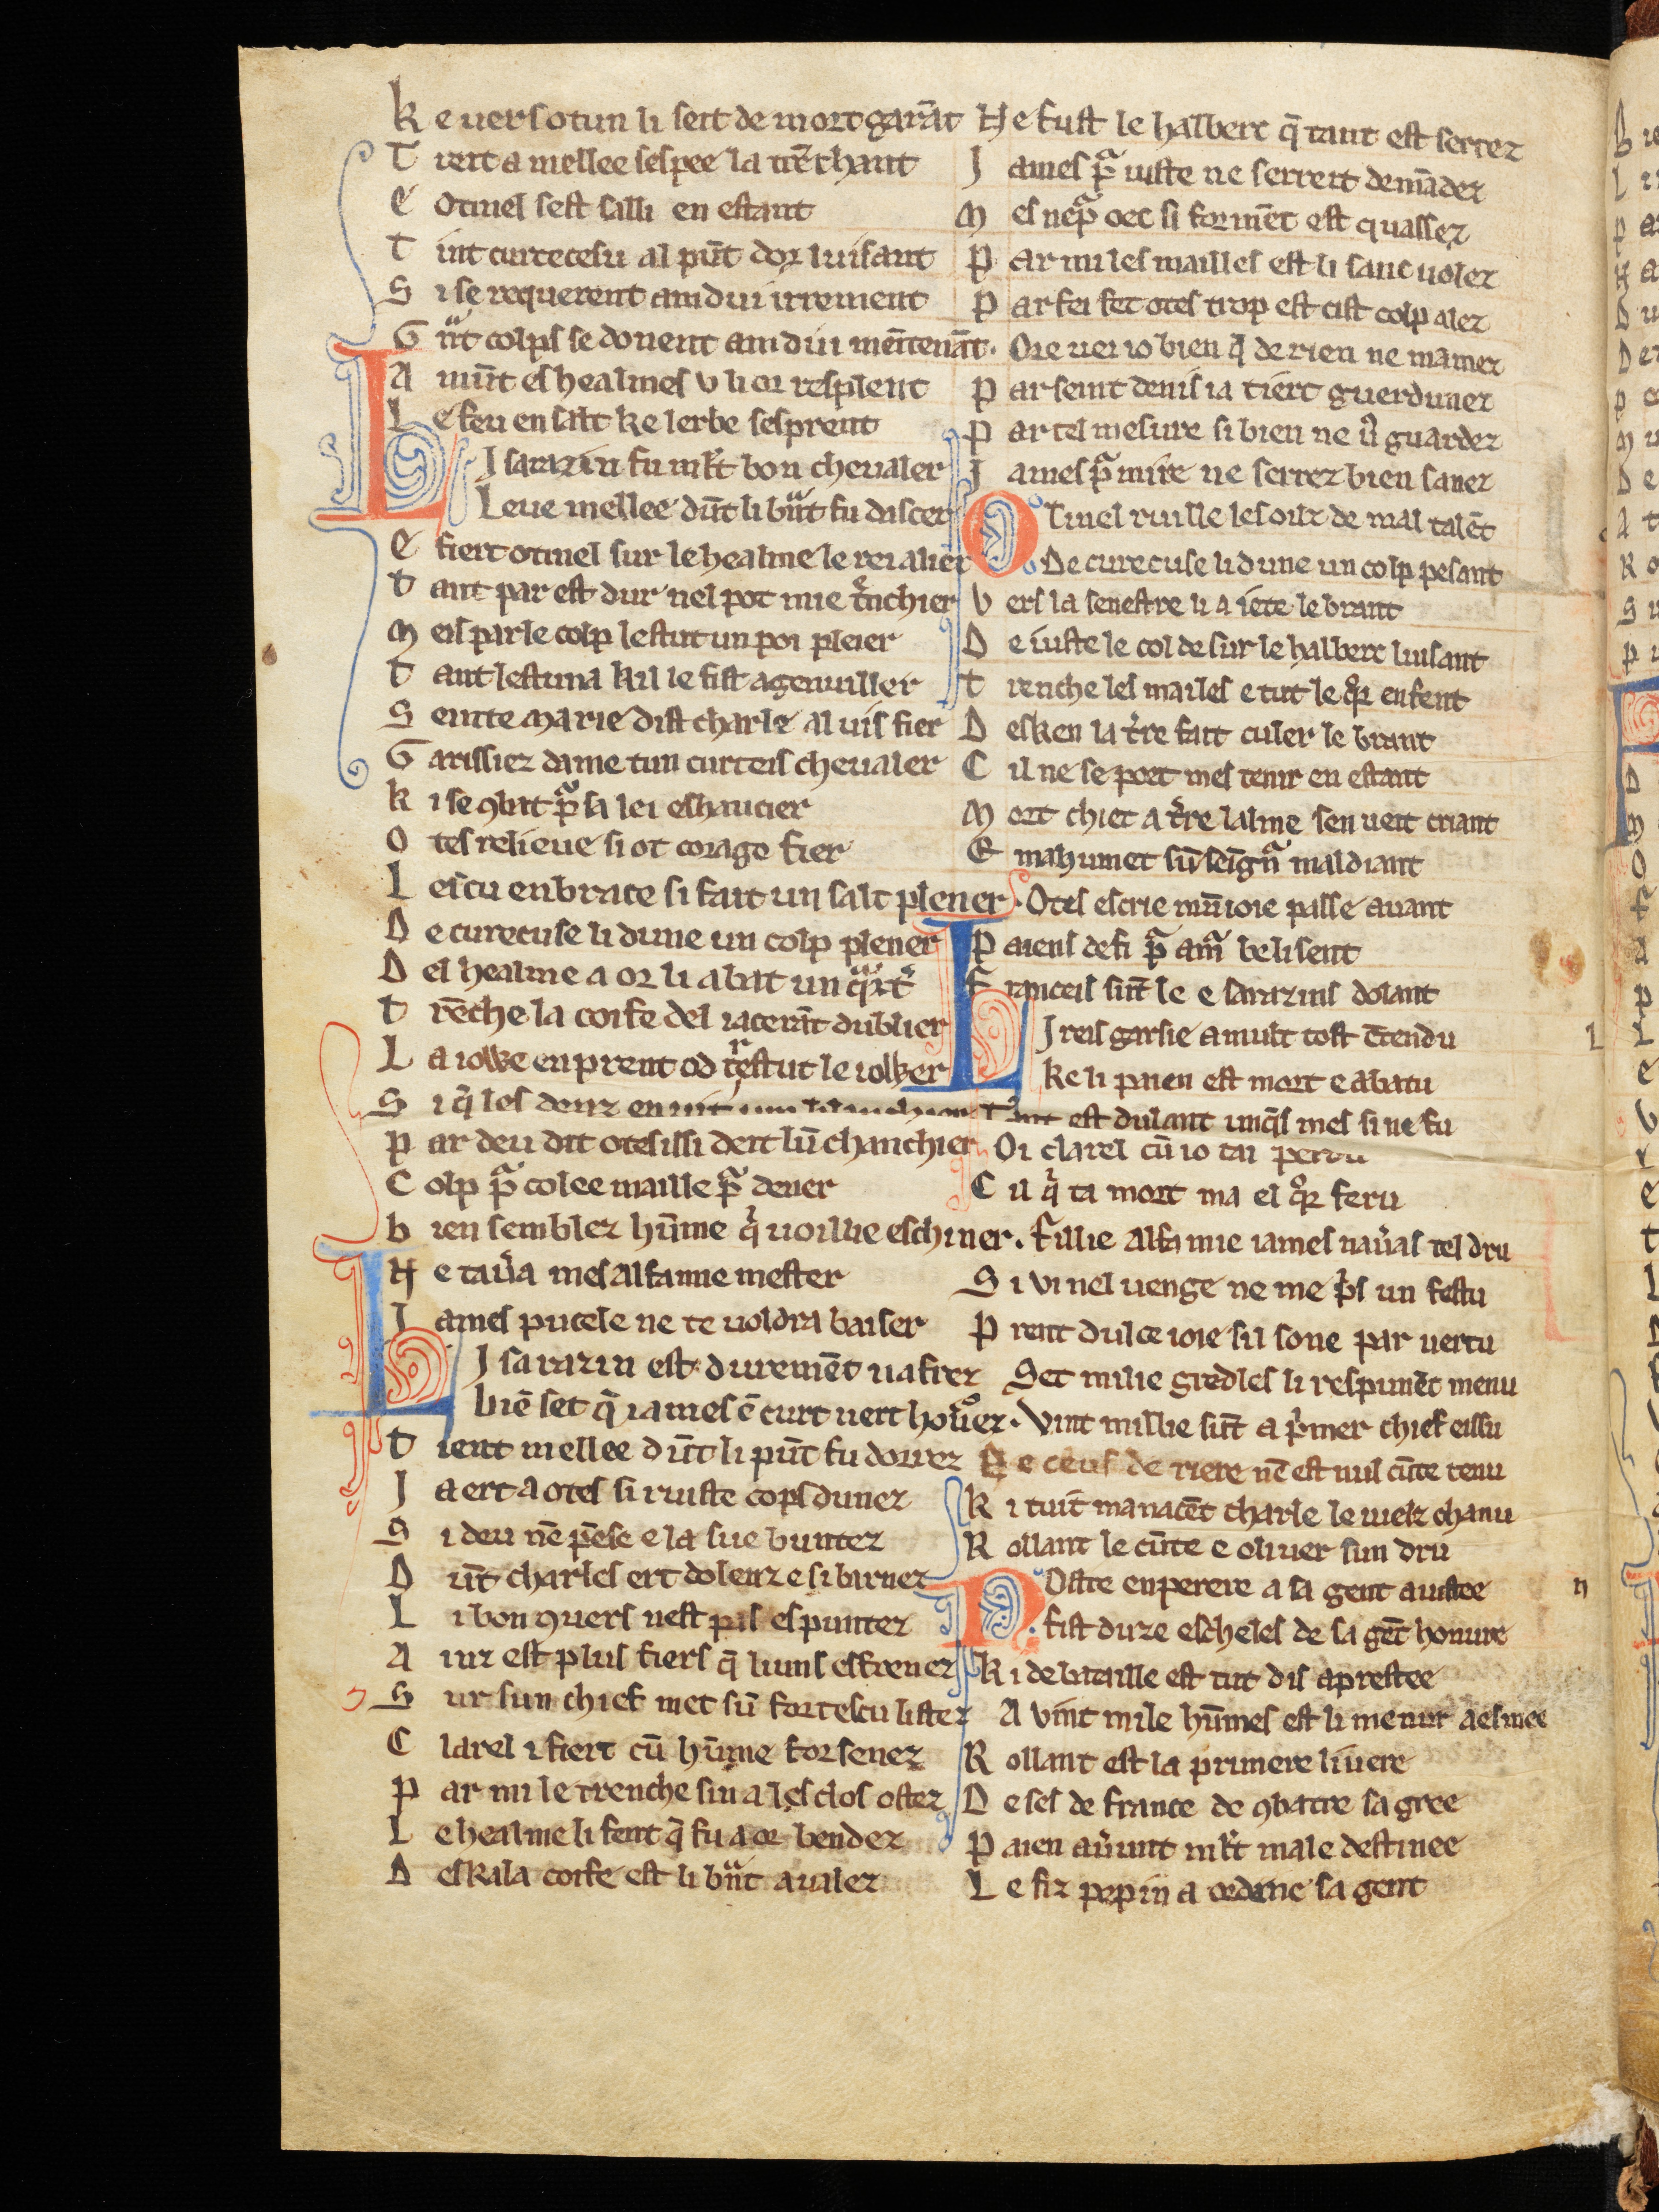 K e uers otun li seit de mort garāt
T reit a mellee sespee la trēchant
E Otinel sest salli en estant
T int curecesu al pūt dor luisant
S i se requerent amdui irrement
G nt colps se donent amdui mēitenāt.
A munt es healmes v li or resplent
L e feu en salt ke lerbe sesprent
L I sarazin fu mlt bon cheualer
Leue mellee dūt li bnt fu dascer
E fiert otinel sur le healme le rei alier
T ant par est dur nel pot mie trnchier
M eis par le colp lestut un poi pleier
T ant lestuna kil le fist agenuiller
S einte marie dist charle al uis fier
G arissiez dame tun curteis cheualer
K i se ꝯbat pa sa lei eshaucier
O tes relieue si ot corage fier
L escu enbrace si fait un salt plener
D e curecuse li dune un colp plener
D el healme a or li abat un qrt
T rēche la coife del iacerāt dublier
L a iowe en prent od trestut le iolker
S i q̄ les denz en
P ar deu dit otes issi deit lū chanchier
C olp pa colee maille pa dener
B ien semblez hūme qi uoillie eschiner.
N e taura mes alfamie mester
I ames pucele ne te uoldra baiser
L I sarazin est duremēt nafrez
biē set q̄ iames ē curt nert honorez.
T ient mellee dūt li pūt fu dorrez
I a ert a otes si ruiste cops dunez
S i deu nē pēse e la sue buntez
D ūt charles ert dolenz e si barnez
L i bon ꝯuers nest pas espuntez
A inz est plus fiers q̄ liuns esfrenez
S ur sun chief met sū fort escu listez
C larel i fiert cū hūme forsenez
P ar mi le trenche sin a les clos ostez
L e healme li fent q̄ fu a or bendez
D eskala coife est li bnt aualez
N e fust le halberc q̄ tant est serrez
I ames pa iuste ne serreit demādez
M es nepaoec si formēt est quassez
P ar mi les mailles est li sanc uolez
P ar fei fet otes trop est cist colp alez
Ore uei io bien q̄ de rien ne mamez
P ar seint denis ia tiert guerdunez
P ar tel mesure si bien ne u guardez
I ames pa mire ne serrez bien sanez
O tinel ruille les oilz de mal talēt
De curecuse li dune un colp pesant
V ers la senestre li a iete le brant
D e iuste le col desur le halberc luisant
T renche les mailes e tut le qor enfent
D esken la tre fait culer le brant
C il ne se poet mes tenir en estant
M ort chiet a tre lalme sen ueit criant
E mahumet sū seign maldiant
Otes escrie mūioie passe auant
P aiens defi pa am belisent
F ranceis sūt le e sarazins dolant
L I reis garsie a mult tost ētendu
ke li paien est mort e abatu
T ant est dulant unq̄s mes si ne fu
Oi clarel cū io tai perdu
C il qi ta mort ma el qor feru
fillie alfamie iames nauras tel dru
S i vi nel uenge ne me pris un festu
P rent dulce ioie sil sone par uertu
Set milie gredles li respunēt menu
Vint millie sūt a pimer chief eissu
De ceus de riere nē est nul cūte tenu
K i tuit manacēt charle le uielz chanu
R ollant le cūte e oliuer sun dru
N Oste enperere a sa gent aiustee
fist duze escheles de sa gēt honuree
K i de bataille est tut dis aprestee
A vint mile hūmes est li menur aesmee
R ollant est la primere liuere
D e ses de france de ꝯbatre sa gree
P aien aurunt mlt male destinee
L e fiz pepin a ordene sa gent